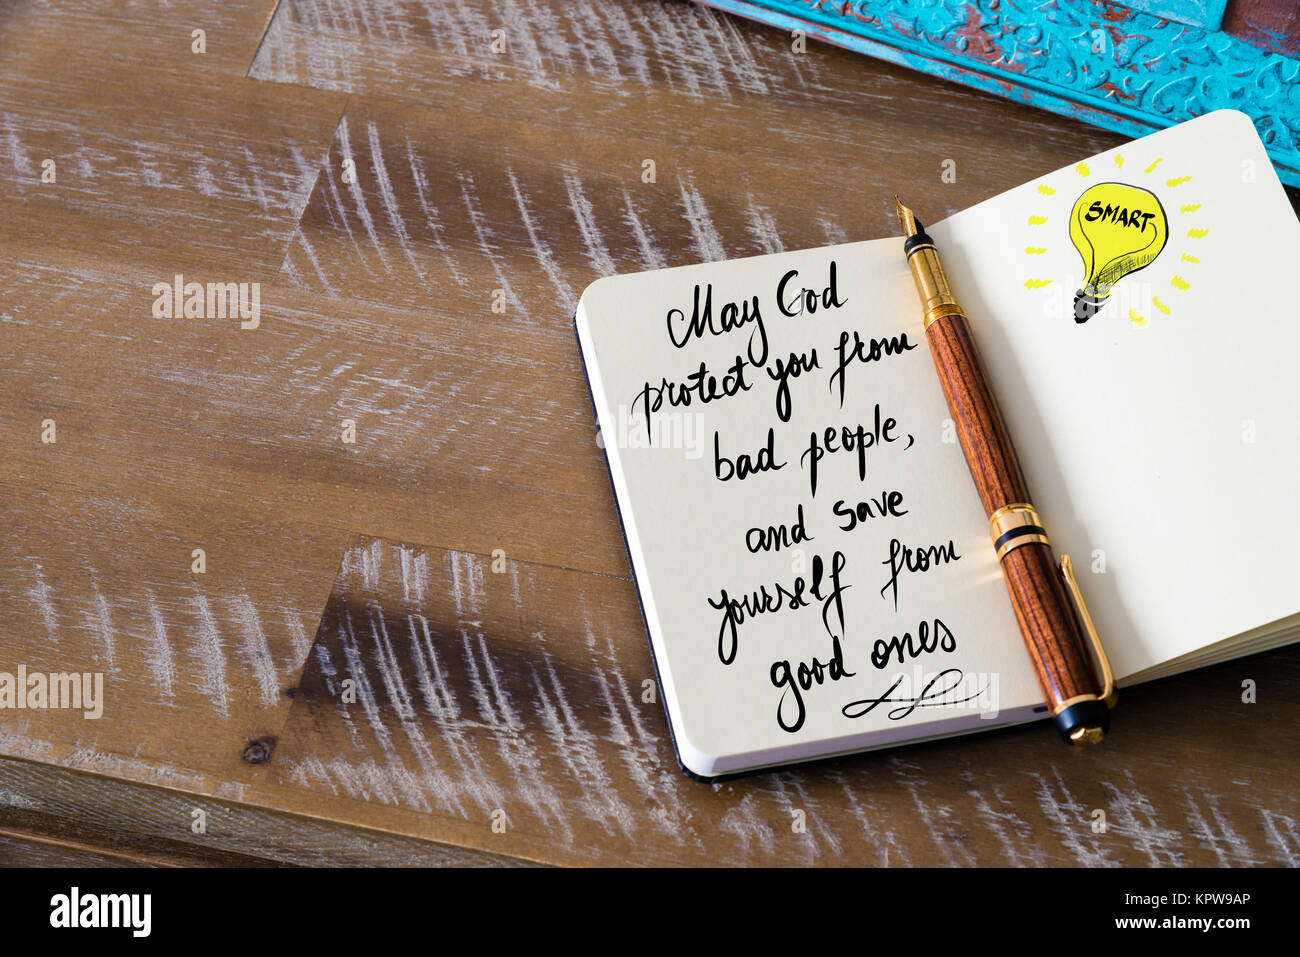 May God
protect you from
bad people,
and save
yourself from
good ones
SMART
alamy
alamy
Image ID: KPW9AP
www.alamy.com